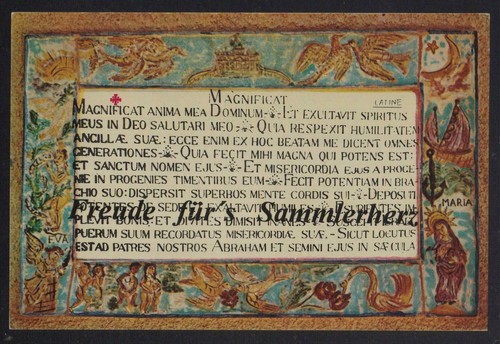 MAGNIFICAT
LATINE
MAGNIFICAT ANIMA MEA DOMINUM - ET EXULTAVIT SPIRITUS
MEUS IN DEO SALUTARI MEO: - QUIA RESPEXIT HUMILITATEM
ANCILLÆ SUÆ: ECCE ENIM EX HOC BEATAM ME DICENT OMNES
GENERATIONES - QUIA FECIT MIHI MAGNA QUI POTENS EST:
ET SANCTUM NOMEN EJUS - ET MISERICORDIA EJUS A PROGE-
NIE IN PROGENIES TIMENTIBUS EUM - FECIT POTENTIAM IN BRA-
CHIO SUO: DISPERSIT SUPERBOS MENTE CORDIS SUI - DEPOSUIT
DE SEDE
Freude für's Sammlerherz
DIMISIT
PUERUM SUUM RECORDATUS MISERICORDIÆ SUÆ - SICUT LOCUTUS
EST AD PATRES NOSTROS ABRAHAM ET SEMINI EJUS IN SÆCULA
EVA
MARIA